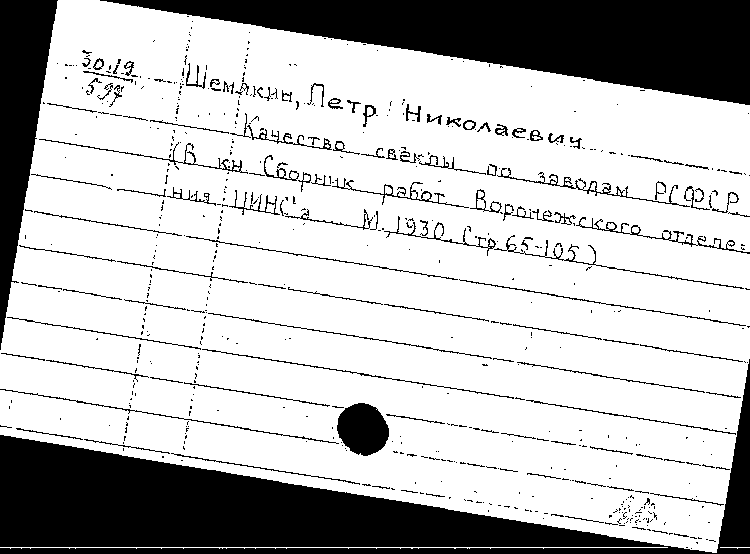 30.19
597
Шемякин, Петр Николаевич
Качество свеклы по заводам РСФСР.
(В кн. Сборник работ Воронежского отделе=
ния ЦИНС'а М., 1930. Стр 65-105)